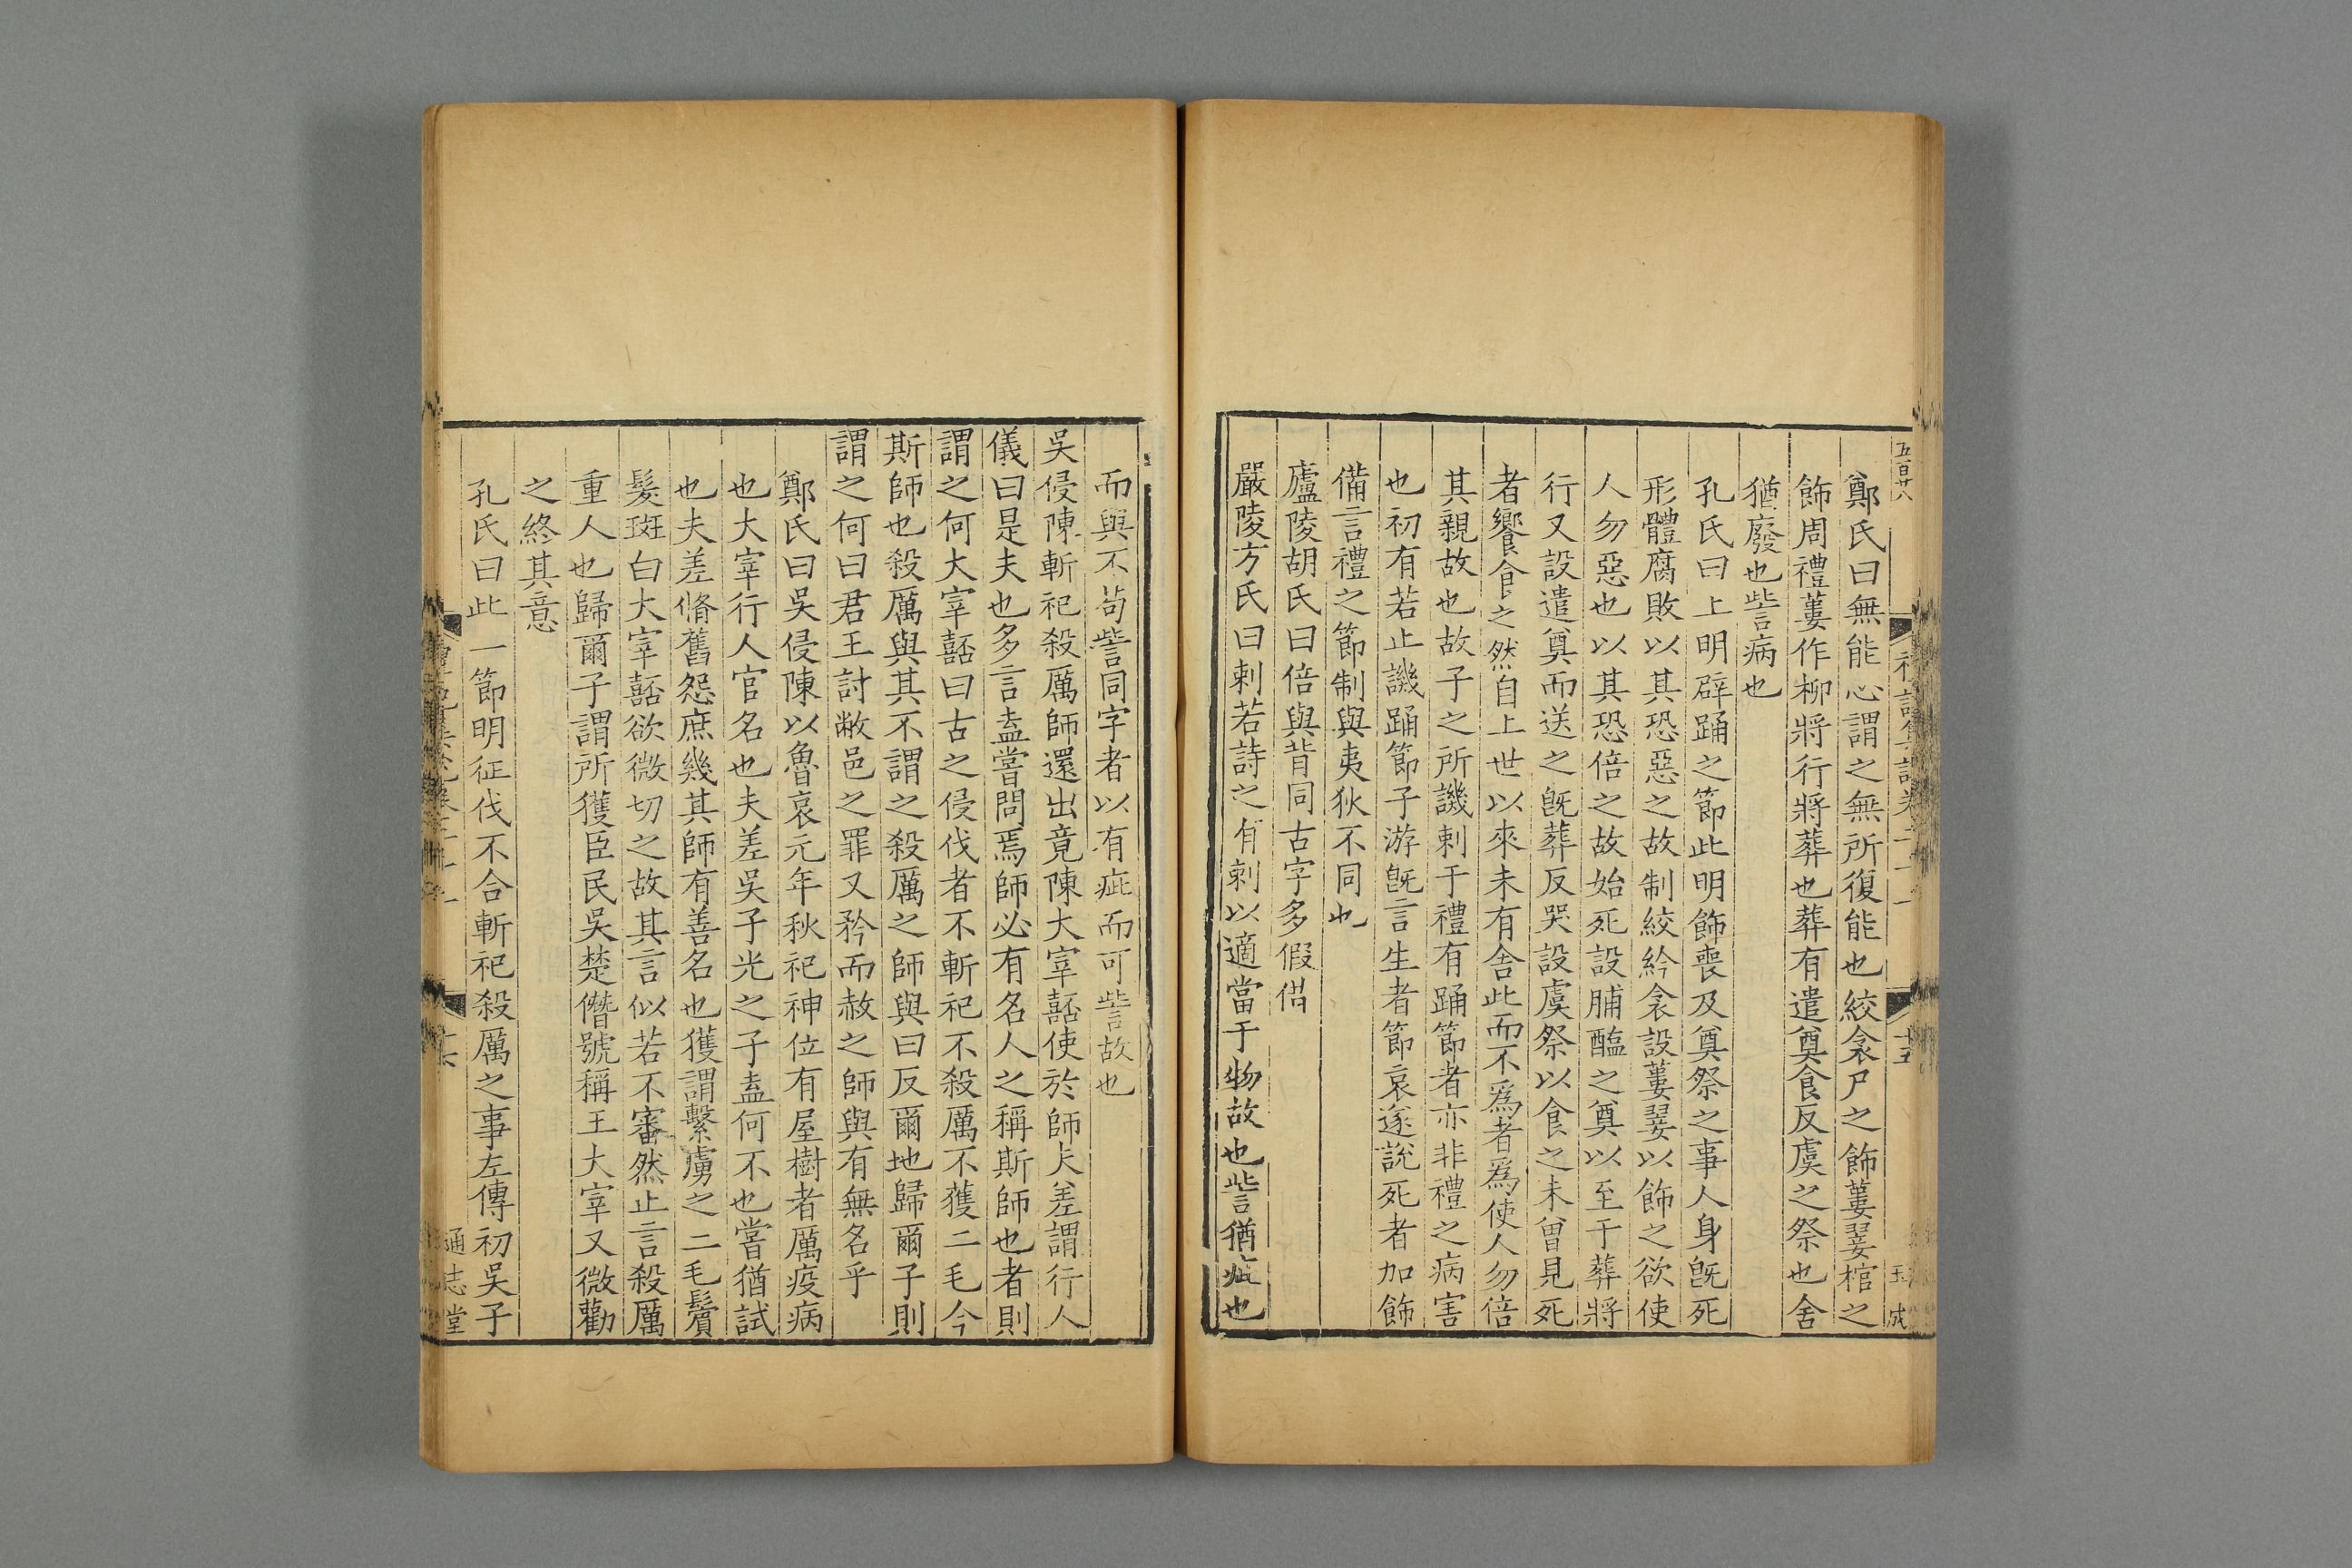 五百廿八
鄭氏曰無能心謂之無所復能也絞衾尸之飾蔞翣棺之
飾周禮蔞作柳將行將葬也葬有遣奠食反虞之祭也舍
猶廢也訾病也
孔氏曰上明辟踊之節此明飾喪及奠祭之事人身旣死
形體腐敗以其恐惡之故制絞紟衾設蔞翣以飾之欲使
人勿惡也以其恐倍之故始死設脯醢之奠以至于葬將
行又設遣奠而送之旣葬反哭設虞祭以食之未曾見死
者饗食之然自上世以來未有舍此而不爲者爲使人勿倍
其親故也故子之所譏刺于禮有踊節者亦非禮之病害
也初有若止譏踊節子游旣言生者節哀遂說死者加飾
備言禮之節制與夷狄不同也
廬陵胡氏曰倍與背同古字多假借
嚴陵方氏曰刺若詩之有刺以適當于物故也訾猶疵也
而與不苟訾同字者以有疵而可訾故也
吳侵陳斬祀殺厲師還出竟陳大宰嚭使於師夫差謂行人
儀曰是夫也多言盍嘗問焉師必有名人之稱斯師也者則
謂之何大宰嚭曰古之侵伐者不斬祀不殺厲不獲二毛今
斯師也殺厲與其不謂之殺厲之師與曰反爾地歸爾子則
謂之何曰君王討敝邑之罪又矜而赦之師與有無名乎
鄭氏曰吳侵陳以魯哀元年秋祀神位有屋樹者厲疫病
也大宰行人官名也夫差吳子光之子盍何不也嘗猶試
也夫差脩舊怨庶幾其師有善名也獲謂繫虜之二毛鬢
髮斑白大宰嚭欲微切之故其言似若不審然止言殺厲
重人也歸爾子謂所獲臣民吳楚僭號稱王大宰又微勸
之終其意
孔氏曰此一節明征伐不合斬祀殺厲之事左傳初吳子
通志堂